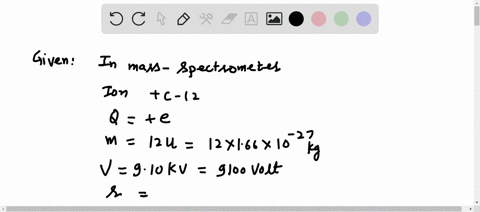 Given: In mass-spectrometer
Ion +C-12
Q = +e
m = 12u = 12×1.66×10⁻²⁷ kg
V = 9.10 KV = 9100 Volt
r =